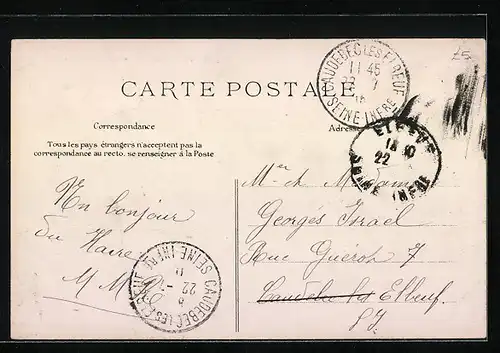 CARTE POSTALE
CAUDEBEC LES ELBEUF
11 45
22 7
SEINE INFRE
£5
Correspondance
Adresse
Tous les pays étrangers n'acceptent pas la
correspondance au recto. se renseigner à la Poste
ELBEUF
22
SEINE INFRE
Un bonjour
du Havre
M M
Mer et Madame
Georges Israel
Rue Guérot 7
Caudebec les Elbeuf
S I
CAUDEBEC LES ELBEUF
22
SEINE INFRE